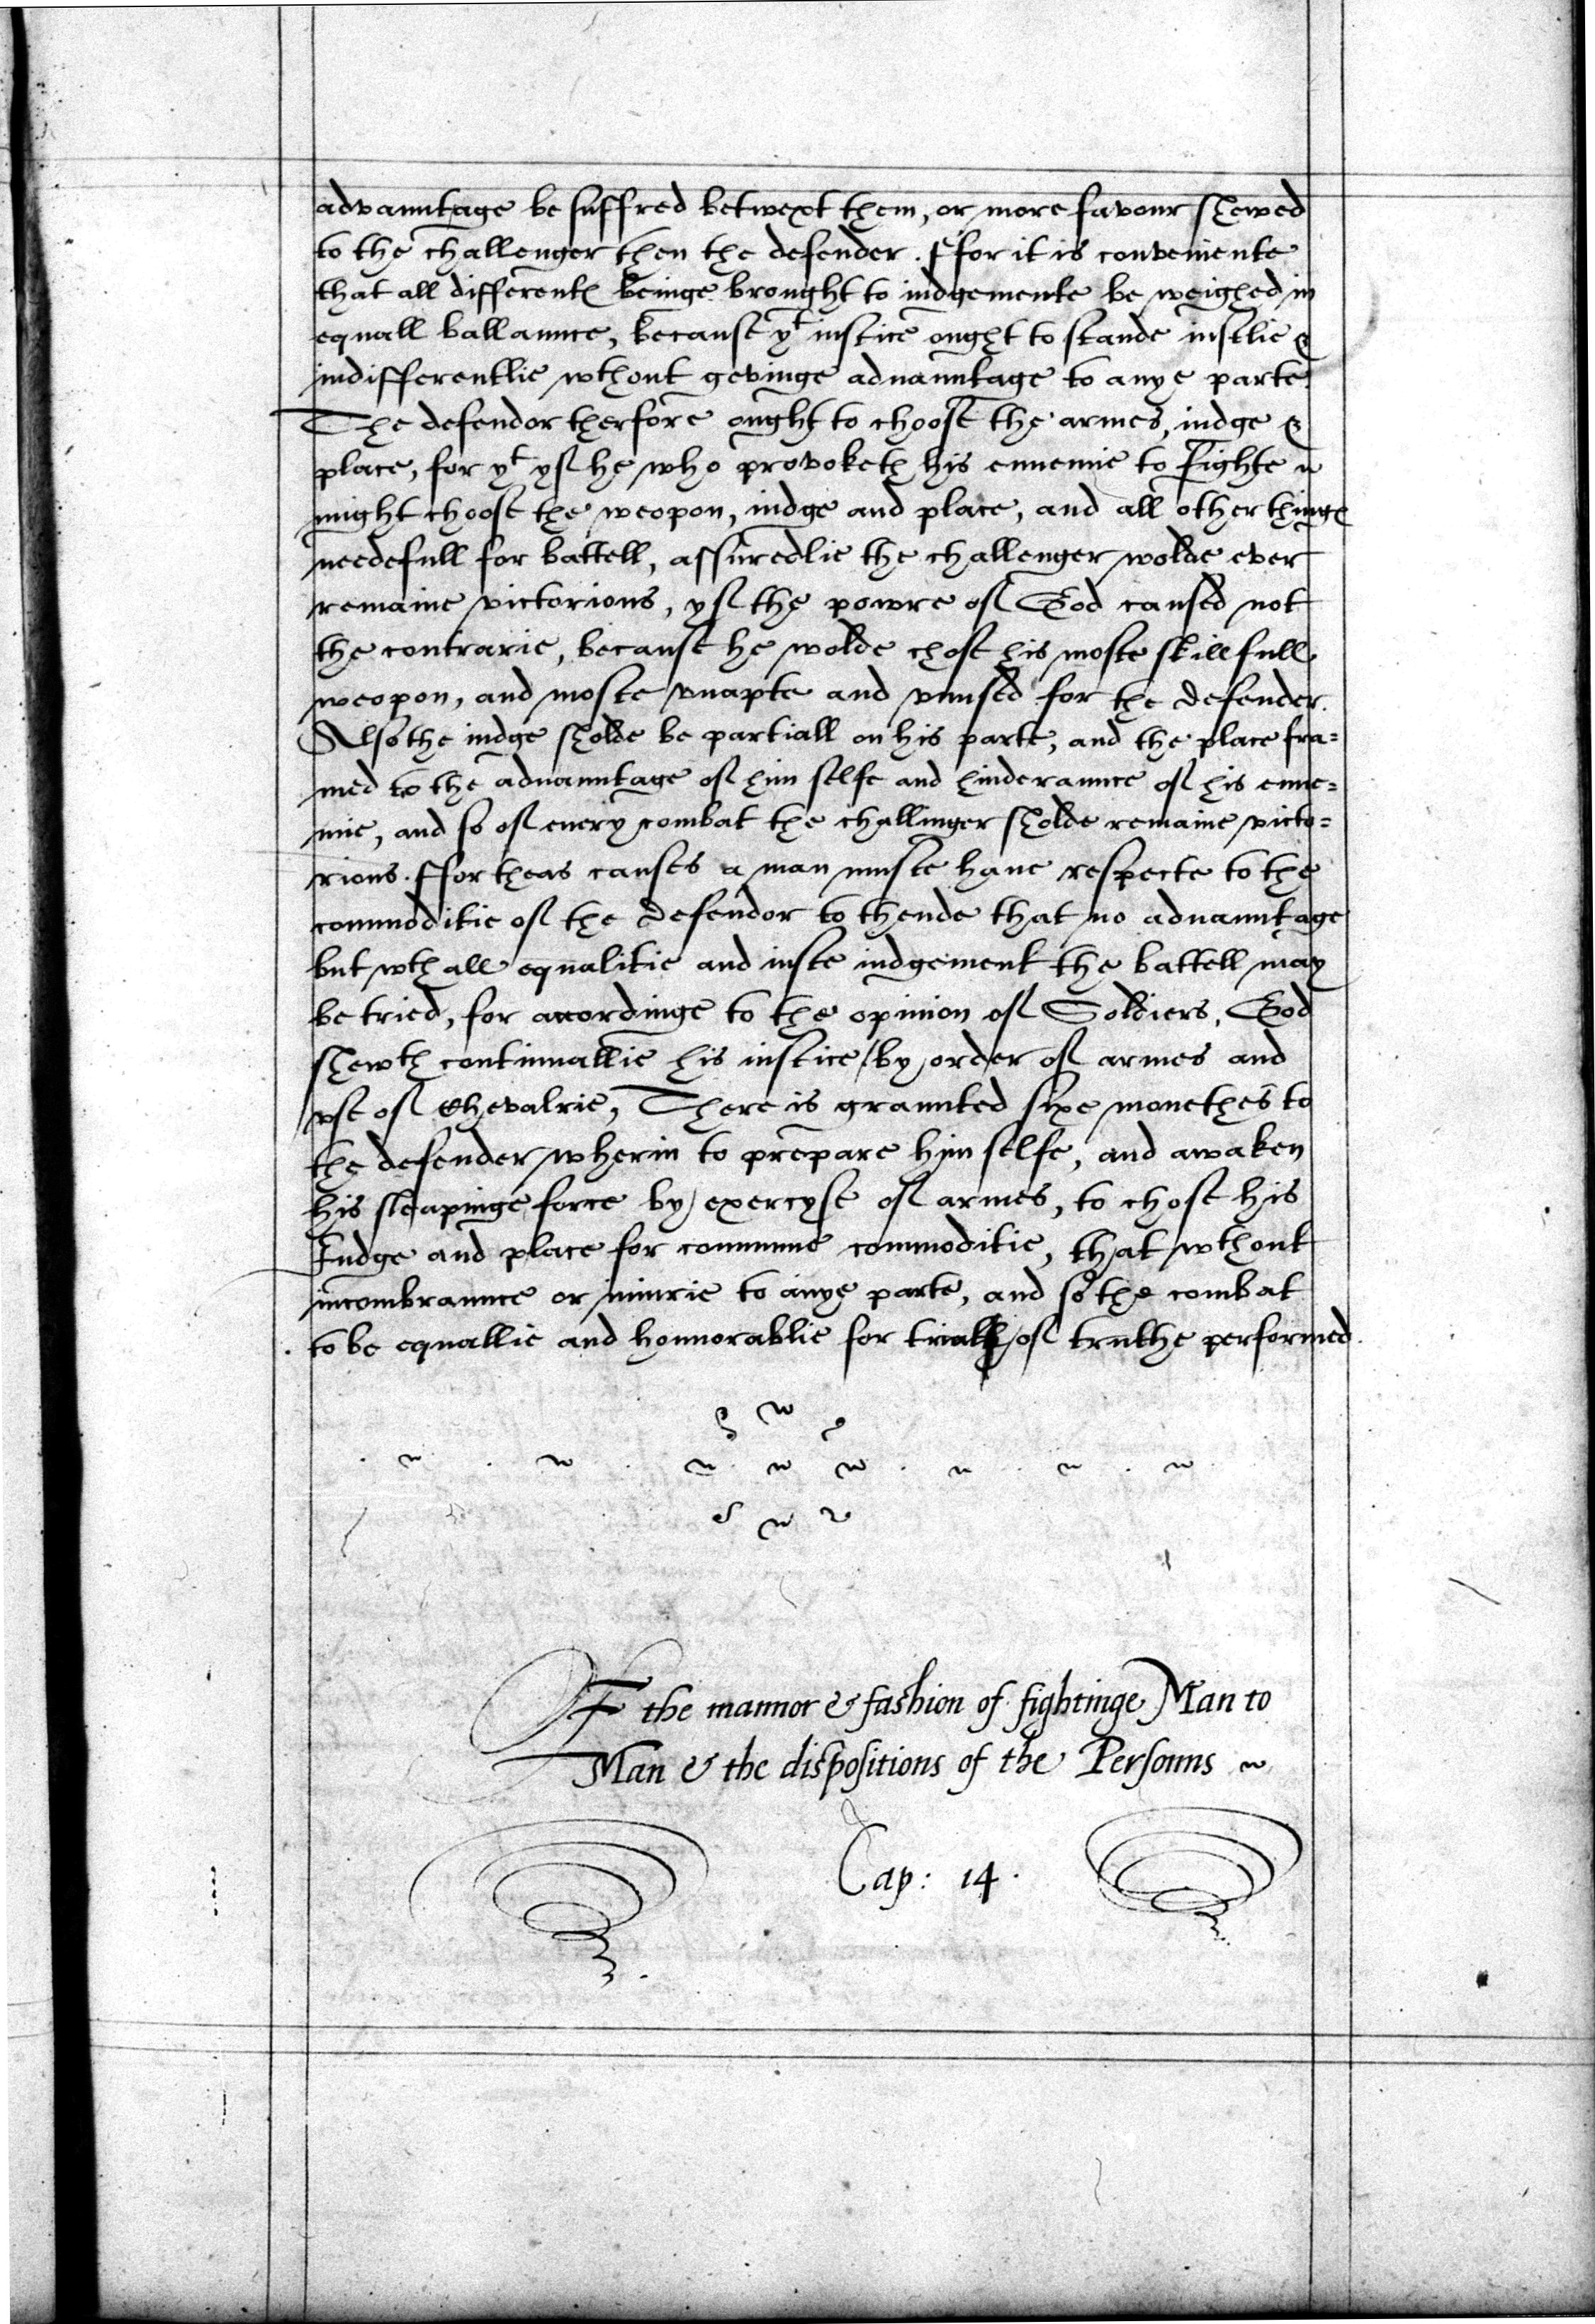 advauntage be suffred betwext them, or more favour shewed
to the challenger then the defender. ffor it is conveniente
that all differentes beinge brought to iudgemente be weighed in
equall ballaunce, because yt iustice ought to stande iustlie &
indifferentlie wthout gevinge aduauntage to anye parte.
The defendor therfore ought to choose the armes, iudge &
place, for yt yf he who provoketh his ennemie to fighte
might choose the weopon, iudge and place, and all other thinges
needefull for battell, assuredlie the challenger wolde ever
remaine victorious, yf the powre of God caused not
the contrarie, because he wolde chose his moste skillfull
weopon, and moste vnapte and vnused for the defender.
Also the iudge sholde be partiall on his parte, and the place fra=
med to the aduauntage of him selfe and hinderaunce of his enne=
mie, and so of euery combat the challinger sholde remaine victo=
rious. ffor theas causes a man muste haue respecte to the
commoditie of the defendor to thende that no aduauntage
but wth all equalitie and iuste iudgement the battell may
be tried, for accordinge to the opinion of Soldiers, God
shewth continuallie his iustice by order of armes and
vse of Chevalrie, There is graunted sixe monethes to
the defender wherin to prepare him selfe, and awaken
his sleapinge force by exercyse of armes, to chose his
Iudge and place for commune commoditie, that wthout
incombraunce or iniurie to anye parte, and so the combat
to be equallie and honnorablie for triall of truthe performed.
OF the mannor & fashion of fightinge Man to
Man & the dispositions of the Persouns
Cap: 14.